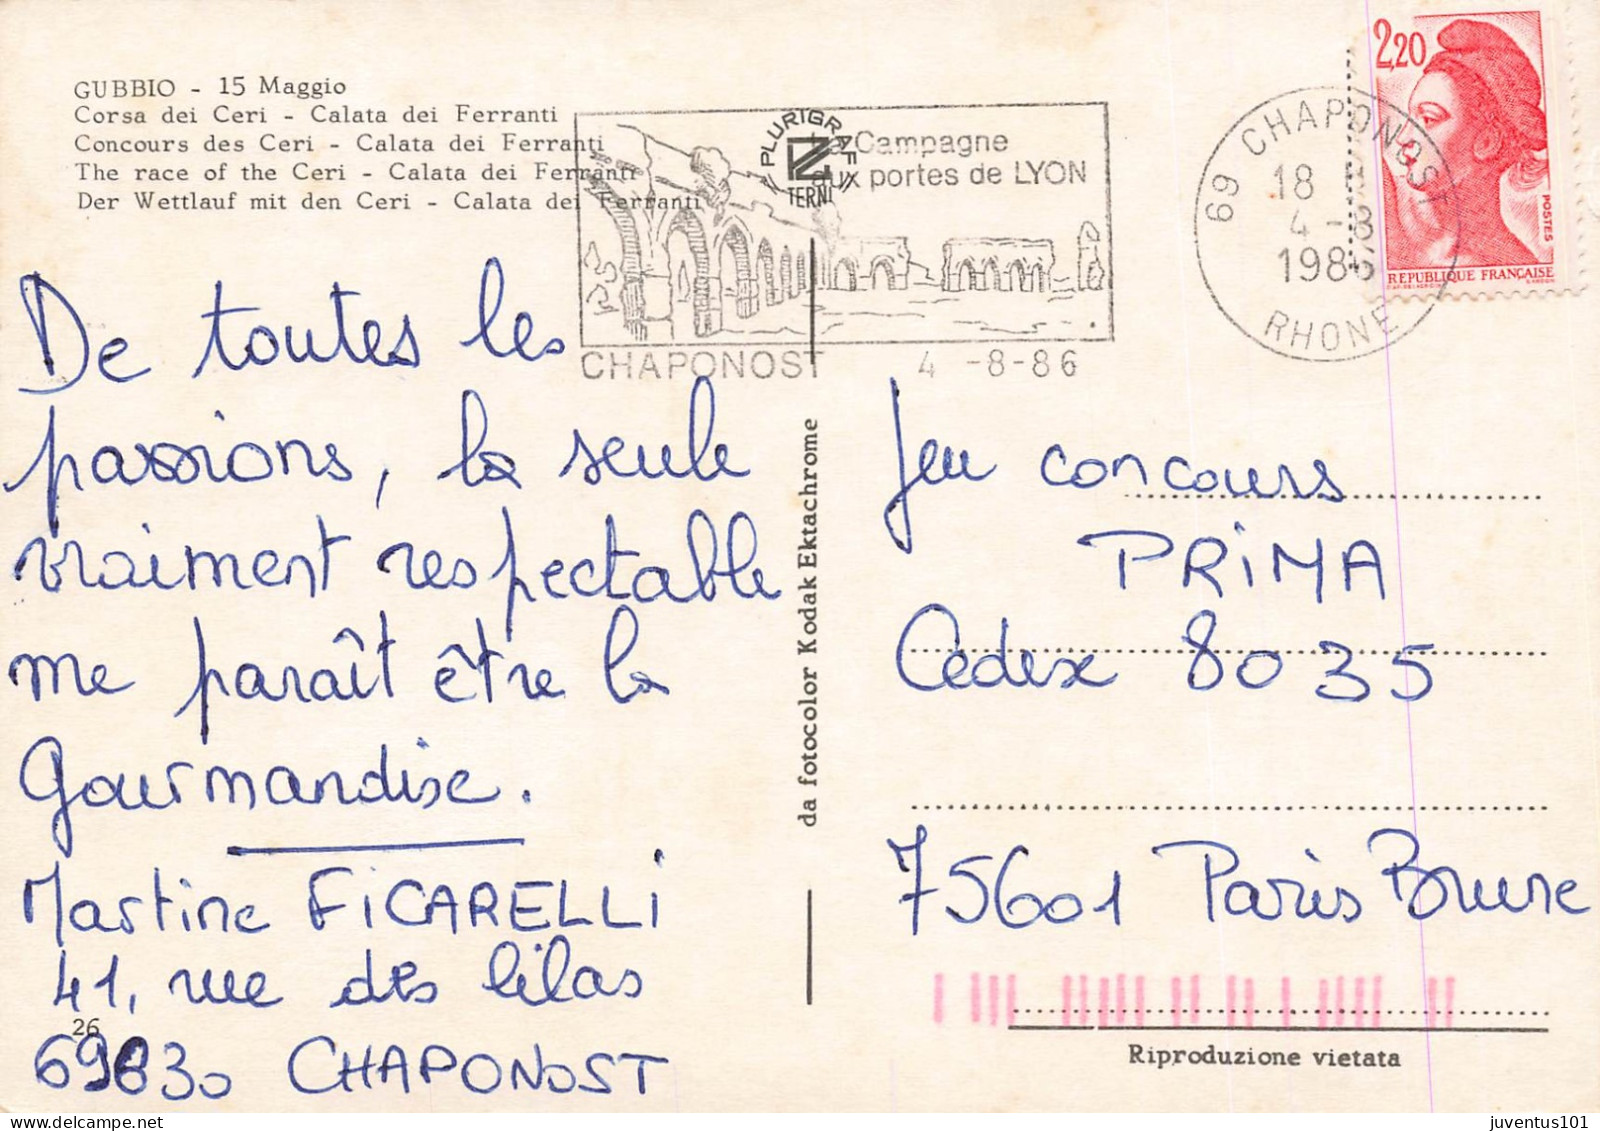 GUBBIO - 15 Maggio
Corsa dei Ceri - Calata dei Ferranti
Concours des Ceri - Calata dei Ferranti
The race of the Ceri - Calata dei Ferranti
Der Wettlauf mit den Ceri - Calata dei Ferranti
PLURIGRAF
TERNI
La Campagne
aux portes de LYON
CHAPONOST 4 -8-86
69 CHAPONOST
18 H
4-8
1986
RHONE
2,20
POSTES
REPUBLIQUE FRANÇAISE
De toutes les
passions, la seule
vraiment respectable
me paraît être la
Gourmandise.
Martine FiCARELLi
41, rue des lilas
26
69630 CHAPONOST
da fotocolor Kodak Ektachrome
Jeu concours
PRiMA
Cedex 8035
75601 Paris Brune
Riproduzione vietata
juventus101